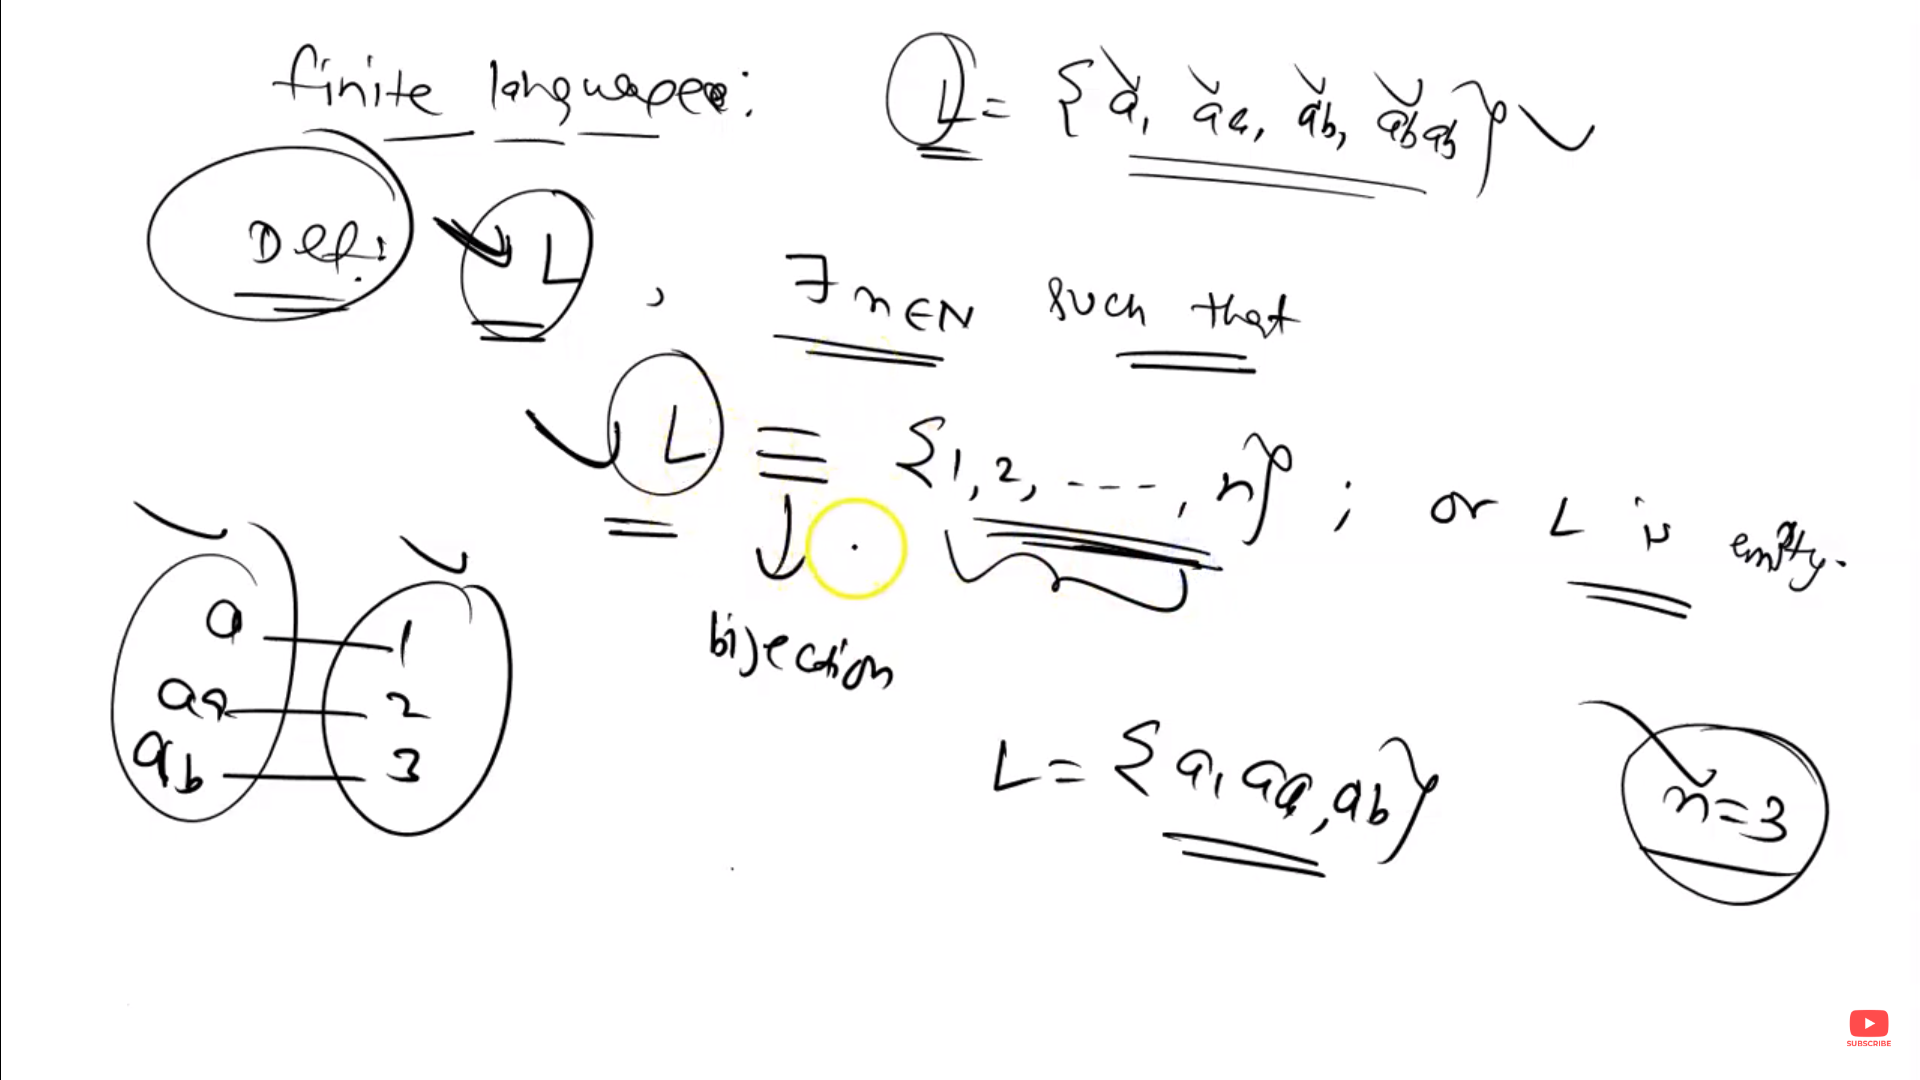 finite languages:
L = {a, aa, ab, abab}
Def: L, ∃ n ∈ N such that
L ≡ {1, 2, ----, n} ; or L is empty.
bijection
a 1
aa 2
ab 3
L = {a, aa, ab}
n = 3
SUBSCRIBE